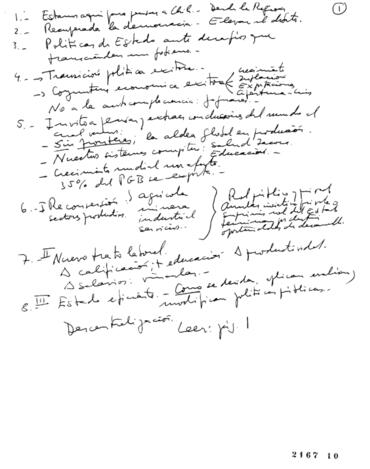 1.- Estamos aquí para pensar a Chile. Desde la
2.- Recuperada la democracia. Elevar el debate.
3.- Políticas de Estado ante desafíos que
trascienden un gobierno.
4.- → Transición política exitosa.-
→ Coyuntura económica exitosa crecimiento
inflación
Exportaciones
apertura
No a la autocomplacencia:
5.- Invito a pensar, extraer conclusiones del mundo al
cual vamos:
- Sin fronteras, la aldea global en producción.
- Nuestros sistemas
Educación.-
- Crecimiento mundial nos afecta.
35% del PGB se exporta.-
6.- I Reconversión agrícola
sectores productivos. minera
industrial
servicios.-
Rol público y privado
rol del Estado
oportunidades de desarrollo.
7. II Nuevo trato laboral.
Δ calificación: + educación Δ productividad.
Δ salarios:
8. III Estado eficiente.- Como se deciden, aplican, evalúan,
modifican políticas públicas.
Descentralización. Leer: pág. 1
2167 10